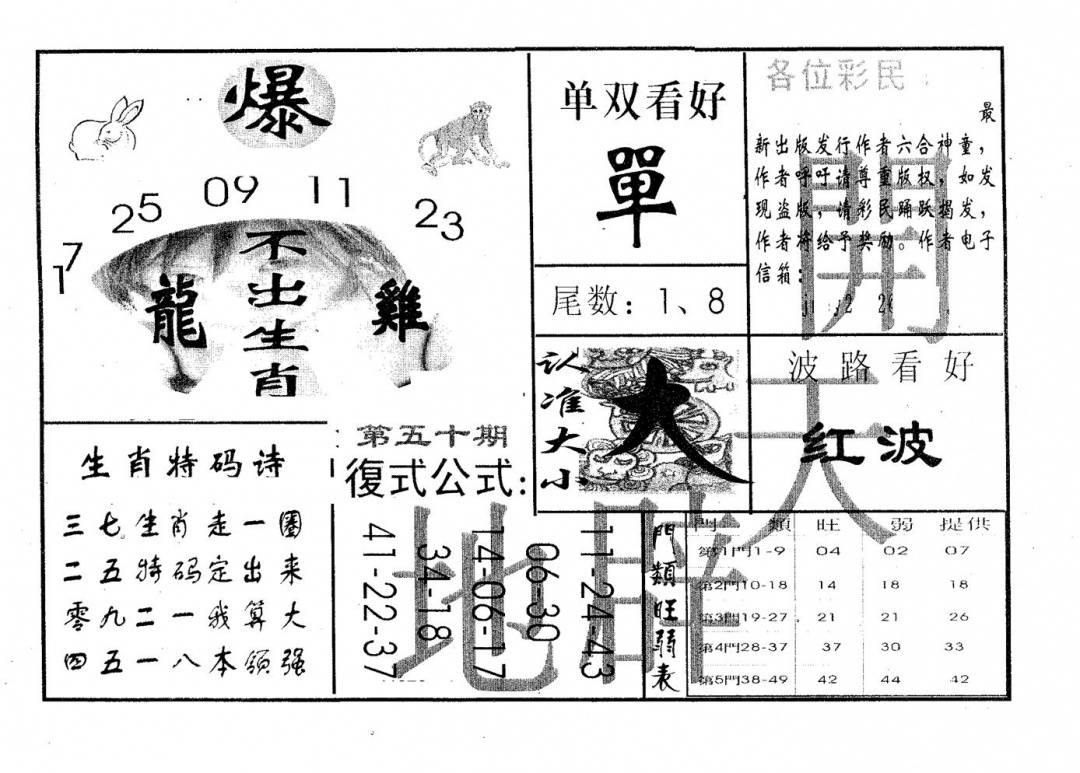 爆
17 25 09 11 23
不出生肖
龍
雞
单双看好
單
尾数：1、8
各位彩民：
最
新出版发行作者六合神童，
作者呼吁请尊重版权，如发
现盗版，请彩民踊跃揭发，
作者将给予奖励。作者电子
信箱：
认准大小
大
波路看好
红波
生肖特码诗
三七生肖走一圈
二五特码定出来
零九二一我算大
四五一八本领强
第五十期
復式公式：
41-22-37
34-18
14-06-17
06-30
11-24-43
門類旺弱表
門 類 旺 弱 提供
第1門1-9 04 02 07
第2門10-18 14 18 18
第3門19-27 21 21 26
第4門28-37 37 30 33
第5門38-49 42 44 42
開
天
地